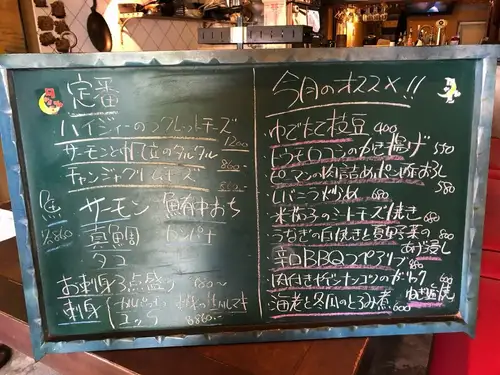 定番
ハイジィーのラクレットチーズ
1200
サーモンと帆立のタルタル
800
チャンジャクリームチーズ
魚
サーモン
真鯛
カンパチ
タコ
お刺身3点盛り
刺身
ユッケ
今月のオススメ!!
ゆでたて枝豆 400
トウモロコシのかき揚げ 550
ピーマンの肉詰めポン酢おろし
580
レバニラ炒め 680
米茄子のトマトチーズ焼き 680
うなぎの白焼きと夏野菜の
あげ浸し
辛口BBQスペアリブ 980
600
ねぎ塩焼
海老と冬瓜のとろみ煮 600